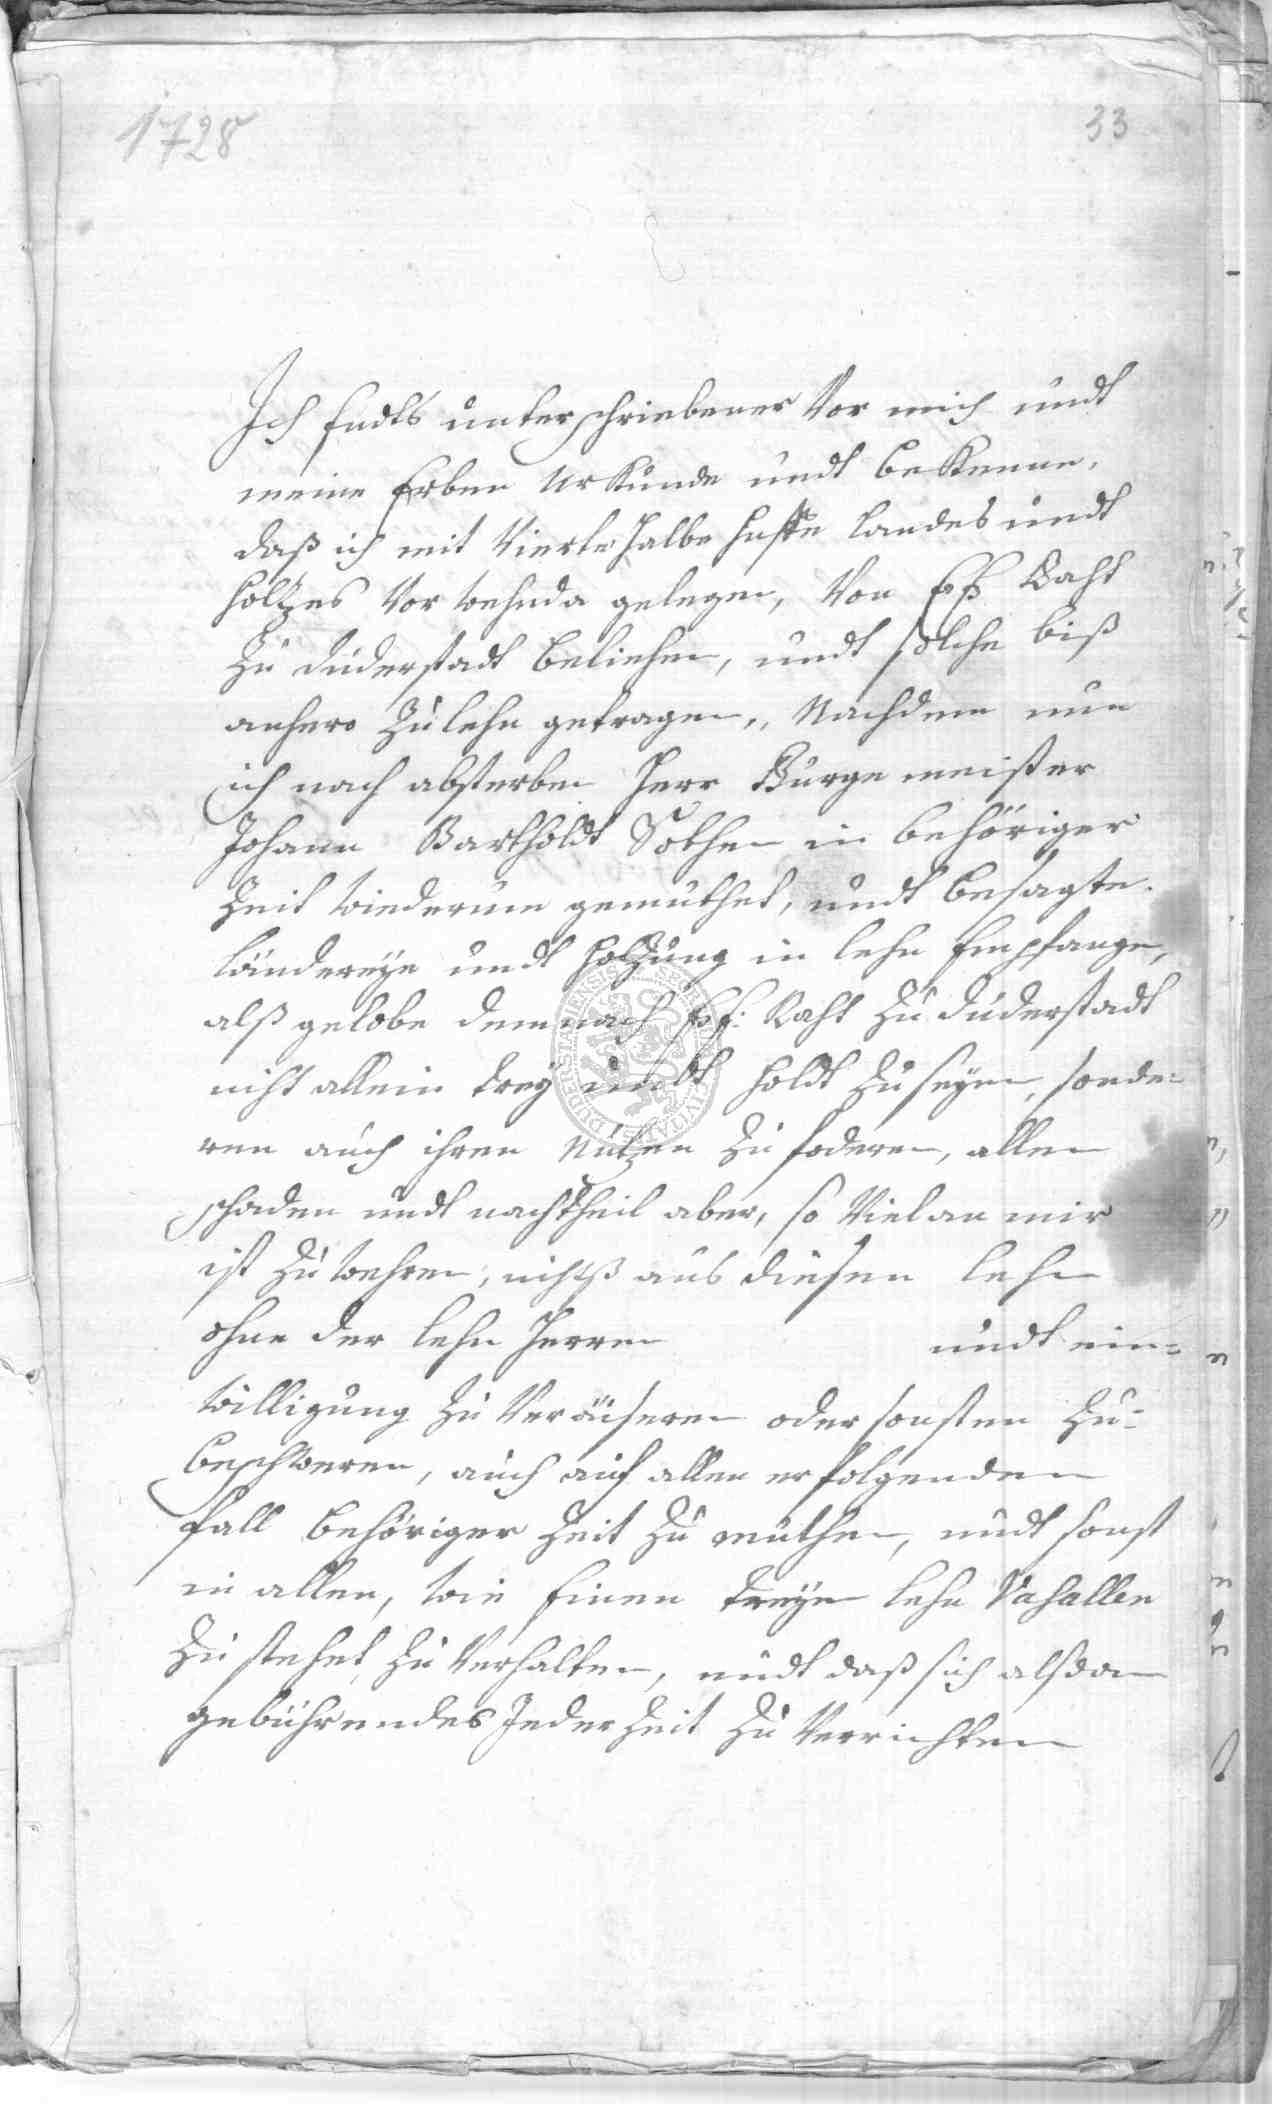 1728
33
Ich Endts unterschriebener Vor mich undt
meine Erben Urkunde undt bekenne,
daß ich mit Viertehalbe huffe landes undt
holtzes Vor wehnda gelegen, Von Raht
zu duderstadt beliehen, undt solche biß
anhero zu lehn getragen,, Nachdem nun
ich nach absterben Herr Burgemeister
Johann Bartholdt Sothen in behöriger
Zeit wiederum gemuthet, undt besagte
ländereye undt holtzung in lehn Empfange,
alß gelobe demnach Raht zu duderstadt
nicht allein trey undt holdt zu seyn, sonde-
ren auch ihren Nutzen zu foderen, allen
schaden undt nachtheil aber, so Viel an mir
ist zu wehren, nichtß aus diesen lehn
ohne der lehn Herren undt ein-
willigung zu Veräuseren oder sonsten zu-
beschweren, auch auf allen erfolgenden
fall behöriger Zeit zu muthen, undt sonst
in allen, wie Einen treyen lehn Vasallen
zu stehet, zu Verhalten, undt daß sich alßdan
gebührendes Jederzeit zu Verrichten
SIGILLUM CIVITATIS DUDERSTADENSIS